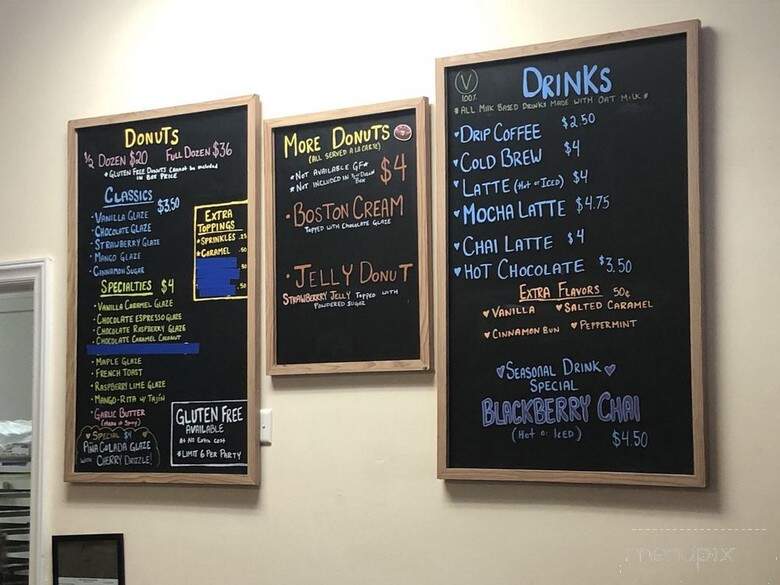 DONUTS
½ DOZEN $20 FULL DOZEN $36
*GLUTEN FREE DONUTS CANNOT BE INCLUDED
IN BOX PRICE
CLASSICS $3.50
• VANILLA GLAZE
• CHOCOLATE GLAZE
• STRAWBERRY GLAZE
• MANGO GLAZE
• CINNAMON SUGAR
EXTRA
TOPPINGS
*SPRINKLES .25
*CARAMEL .50
.50
.50
SPECIALTIES $4
• VANILLA CARAMEL GLAZE
• CHOCOLATE ESPRESSO GLAZE
• CHOCOLATE RASPBERRY GLAZE
• CHOCOLATE CARAMEL COCONUT
• MAPLE GLAZE
• FRENCH TOAST
• RASPBERRY LIME GLAZE
• MANGO-RITA W/ TAJÍN
• GARLIC BUTTER
♥ SPECIAL $4
PIÑA COLADA GLAZE
WITH CHERRY DRIZZLE!
GLUTEN FREE
AVAILABLE
AT NO EXTRA COST
*LIMIT 6 PER PARTY
MORE DONUTS
(ALL SERVED A LA CARTE)
*NOT AVAILABLE GF*
*NOT INCLUDED IN
BOX
$4
• BOSTON CREAM
TOPPED WITH CHOCOLATE GLAZE
• JELLY DONUT
STRAWBERRY JELLY TOPPED WITH
POWDERED SUGAR
V
100%
DRINKS
*ALL MILK BASED DRINKS MADE WITH OAT MILK*
♥DRIP COFFEE $2.50
♥COLD BREW $4
♥LATTE (HOT OR ICED) $4
♥MOCHA LATTE $4.75
♥CHAI LATTE $4
♥HOT CHOCOLATE $3.50
EXTRA FLAVORS 50¢
♥VANILLA ♥SALTED CARAMEL
♥CINNAMON BUN ♥PEPPERMINT
♥SEASONAL DRINK♥
SPECIAL
BLACKBERRY CHAI
(HOT OR ICED) $4.50
menupix